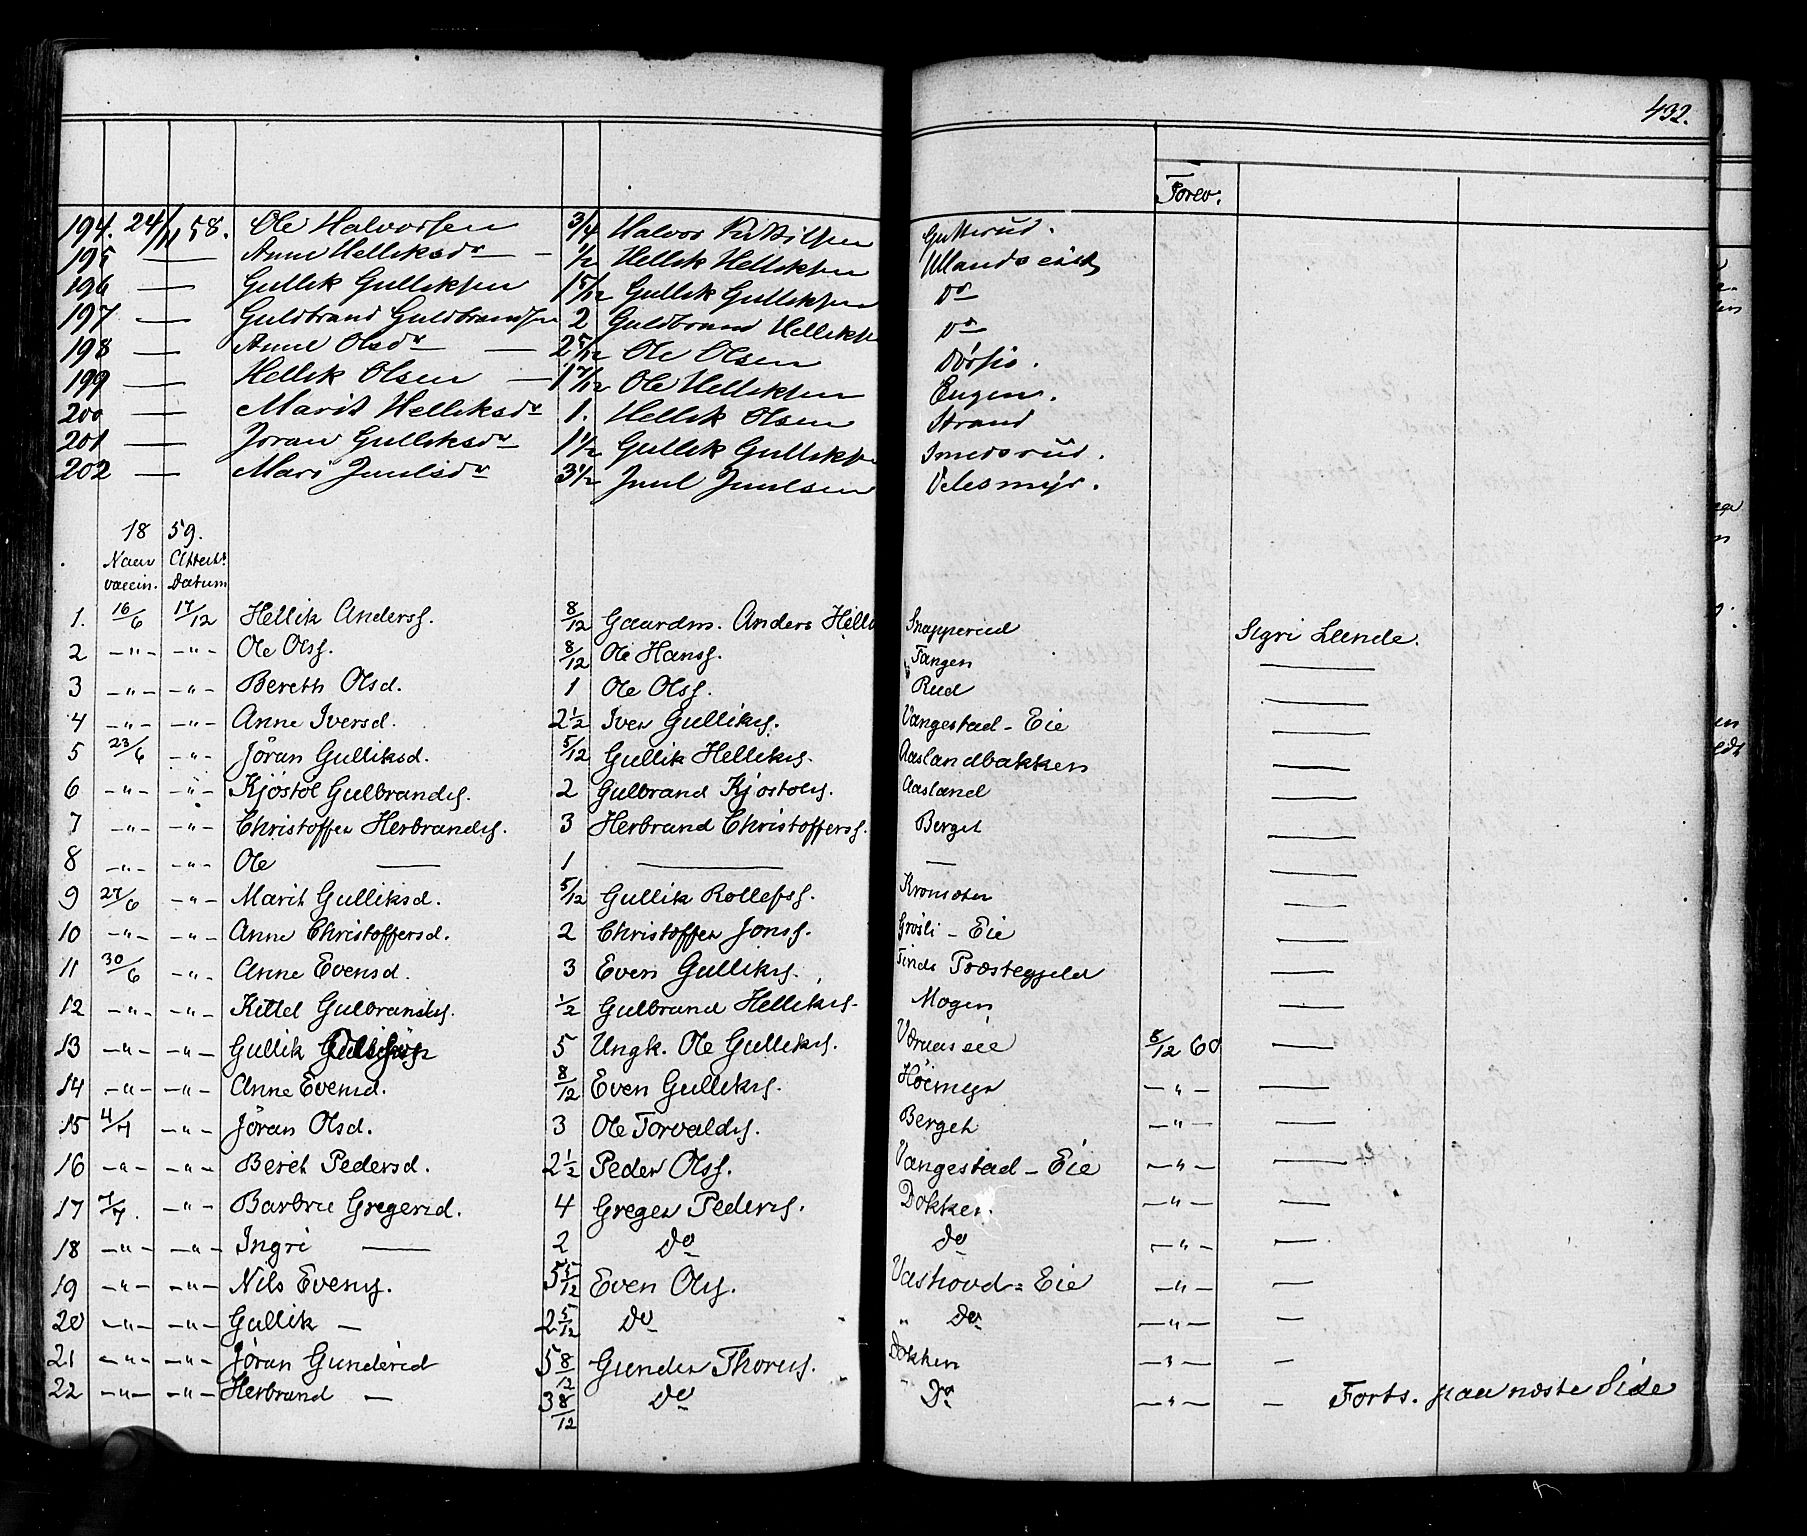 432.
Forev:
194. 24/11 58. Ole Halvorsen 3/4 Halvor Kittilsen Gutterud.
195 — Anne Helliksdr — 1/2 Hellik Helliksen Ullandseiet
196 — Gullik Gulliksen 1 5/12 Gullik Gulliksen Do
197 — Guldbrand Guldbrandsen 2 Guldbrand Helliksen Do
198 — Anne Olsdr — 2 5/12 Ole Olsen
199 — Hellik Olsen — 1 7/12 Ole Helliksen Engen.
200 — Marit Helliksdr 1. Hellik Olsen Strand
201 — Jøran Gulliksdr 1 1/2 Gullik Gulliksen Smedsrud.
202 — Mari Juulsdr 3 1/2 Juul Juulsen Velesmyr.
18 59.
Naar Attest.
vaccin. Datum
1. 16/6 17/12 Hellik Andersf. 8/12 Gaardm. Anders Hell Snapperud Sigri Lunde.
2 —"— —"— Ole Olsf. 8/12 Ole Hansf. Tangen —
3 —"— —"— Bereth Olsd. 1 Ole Olsf. Rud —
4 —"— —"— Anne Iversd. 2 1/2 Iver Gulliksf. Vangestad - Eie —
5 23/6 —"— Jöran Gulliksd. 5/12 Gullik Helliksf. Aaslandbakken —
6 —"— —"— Kjöstol Gulbrandsf. 2 Gulbrand Kjöstolsf. Aasland —
7 —"— —"— Christoffer Herbrandsf. 3 Herbrand Christoffersf. Berget —
8 —"— —"— Ole — 1 — — —
9 27/6 —"— Marit Gulliksd. 5/12 Gullik Rollefsf. Kromoten —
10 —"— —"— Anne Christoffersd. 2 Christoffer Jonsf. Grösli - Eie —
11 30/6 —"— Anne Evensd. 3 Even Gulliksf. Tinds Præstegjeld —
12 —"— —"— Kittel Gulbrandsf. 1/2 Gulbrand Helliksf. Mogen —
13 —"— —"— Gullik 5 Ungk. Ole Gulliksf. Værnes eie 8/12 60 —
14 —"— —"— Anne Evensd. 8/12 Even Gulliksf. Höimyr —"— —
15 4/7 —"— Jöran Olsd. 3 Ole Torvaldsf. Berget —"— —
16 —"— —"— Beret Pedersd. 2 1/2 Peder Olsf. Vangestad - Eie —"— —
17 7/7. —"— Barbru Gregersd. 4 Greger Pedersf. Dokken. —"— —
18 —"— —"— Ingri — 2 Do Do —"— —
19 —"— —"— Nils Evensf. 5 5/12 Even Olsf. Vashovd = Eie —"— —
20 —"— —"— Gullik — 2 5/12 Do " Do —"— —
21 —"— —"— Jöran Gundersd 5 8/12 Gunder Thorsf. Dokken —"— —
22 —"— —"— Herbrand — 3 8/12 Do " Do —"— — Forts. paa næste Side